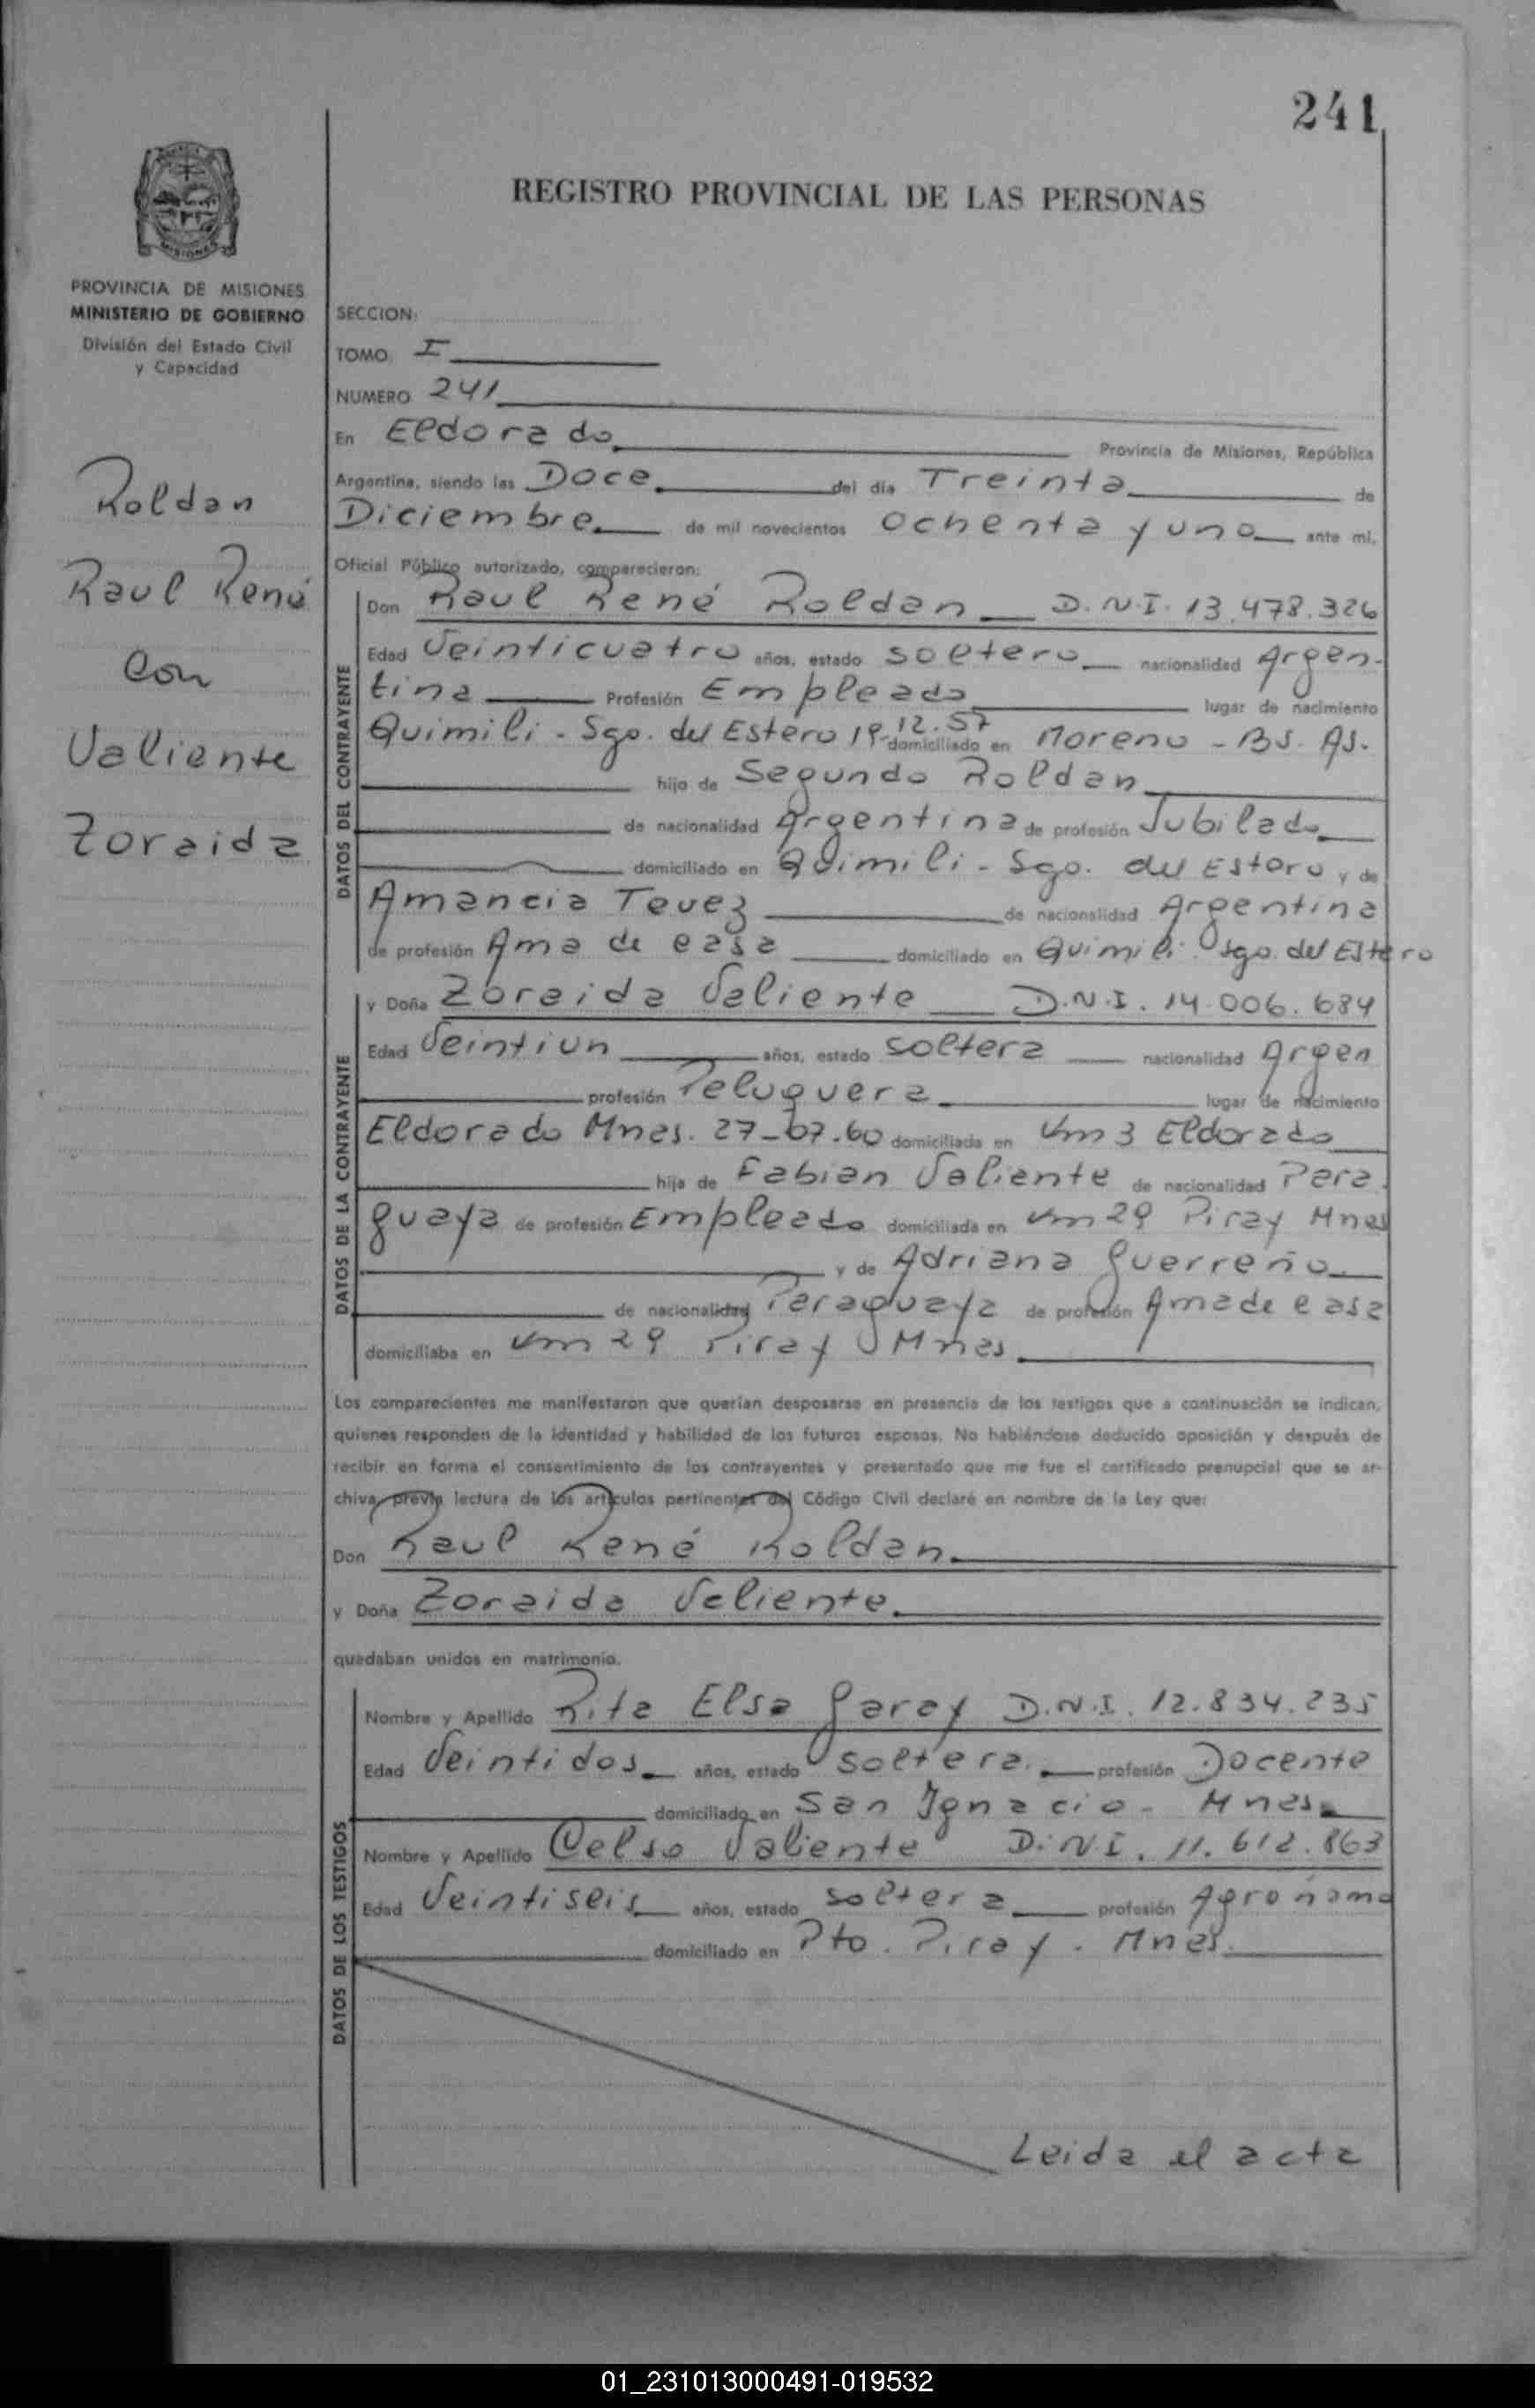 241
REGISTRO PROVINCIAL DE LAS PERSONAS
MISIONES
PROVINCIA DE MISIONES
MINISTERIO DE GOBIERNO
División del Estado Civil
y Capacidad
Roldan
Raul René
con
Valiente
Zoraida
SECCION:
TOMO I
NUMERO 241
En Eldorado Provincia de Misiones, República
Argentina, siendo las Doce del día Treinta de
Diciembre de mil novecientos ochenta y uno ante mí,
Oficial Público autorizado, comparecieron:
DATOS DEL CONTRAYENTE
Don Raul René Roldan D.N.I. 13.478.326
Edad Veinticuatro años, estado soltero nacionalidad Argen-
tina Profesión Empleado lugar de nacimiento
Quimili - Sgo. del Estero 19-12.57 domiciliado en Moreno - Bs. As.
hijo de Segundo Roldan
de nacionalidad Argentina de profesión Jubilado
domiciliado en Quimili - Sgo. del Estero y de
Amancia Tevez de nacionalidad Argentina
de profesión Ama de casa domiciliado en Quimili. Sgo. del Estero
DATOS DE LA CONTRAYENTE
y Doña Zoraida Valiente D.N.I. 14.006.684
Edad Veintiun años, estado soltera nacionalidad Argen
profesión Peluquera lugar de nacimiento
Eldorado Mnes. 27-07.60 domiciliada en Km 3 Eldorado
hija de Fabian Valiente de nacionalidad Para
guaya de profesión Empleado domiciliada en Km 29 Piray Mnes
y de Adriana Guerreño
de nacionalidad Paraguaya de profesión Ama de casa
domiciliaba en Km 29 Piray Mnes
Los comparecientes me manifestaron que querían desposarse en presencia de los testigos que a continuación se indican,
quienes responden de la identidad y habilidad de los futuros esposos. No habiéndose deducido oposición y después de
recibir en forma el consentimiento de los contrayentes y presentado que me fue el certificado prenupcial que se ar-
chiva, previa lectura de los artículos pertinentes del Código Civil declaré en nombre de la Ley que:
Don Raul René Roldan
y Doña Zoraida Valiente
quedaban unidos en matrimonio.
DATOS DE LOS TESTIGOS
Nombre y Apellido Rita Elsa Garay D.N.I. 12.834.235
Edad Veintidos años, estado soltera profesión Docente
domiciliado en San Ignacio - Mnes
Nombre y Apellido Celso Valiente D.N.I. 11.612.863
Edad Veintiseis años, estado soltera profesión Agronomo
domiciliado en Pto. Piray. Mnes.
Leida el acta
01_231013000491-019532